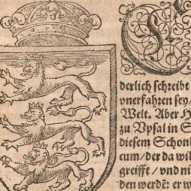 derlich schreibt
vnerfahren sey
Welt. Aber H
zu Vpsal in S
diesem Schon
cum/der da wil
greifft / vnd m
den werdē: er w